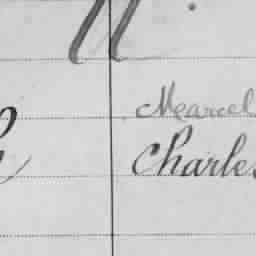 Marcel
Charles